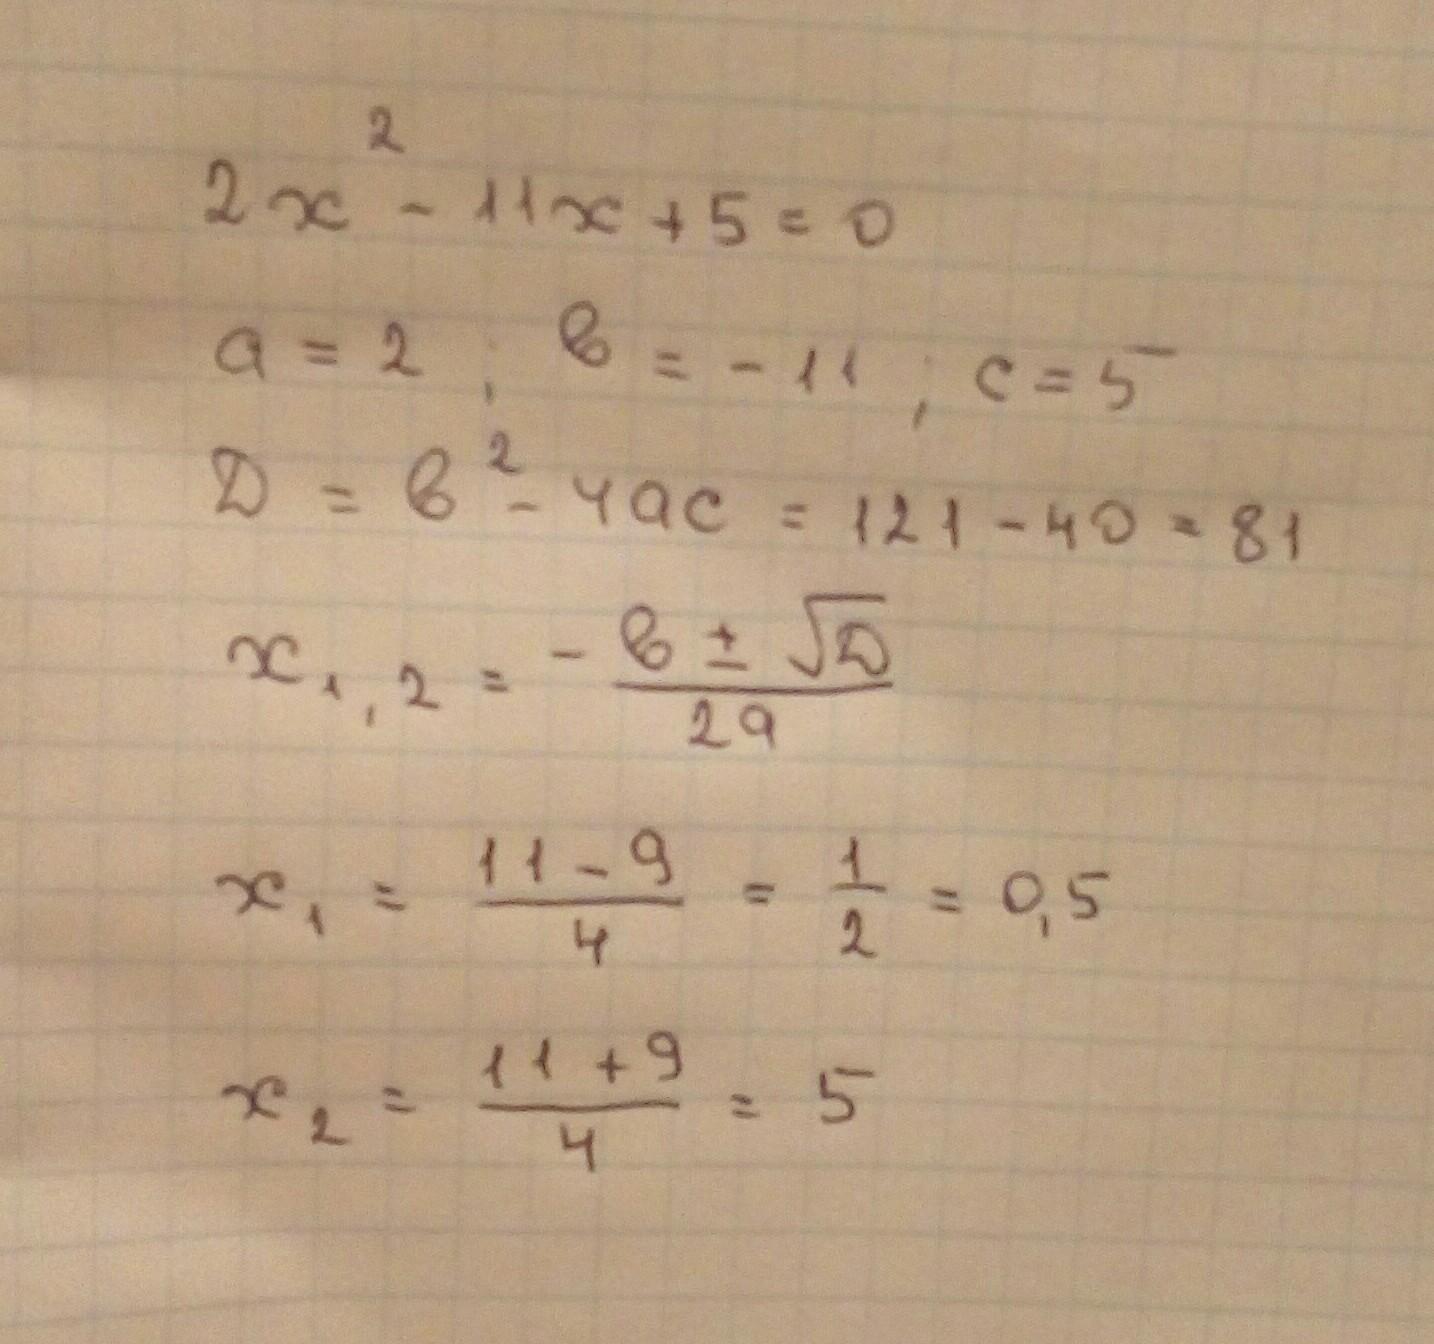 2x² - 11x + 5 = 0
a = 2 ; в = -11 ; c = 5
D = в² - 4ac = 121 - 40 = 81
x₁,₂ = (-в ± √D) / 2a
x₁ = (11 - 9) / 4 = 1/2 = 0,5
x₂ = (11 + 9) / 4 = 5